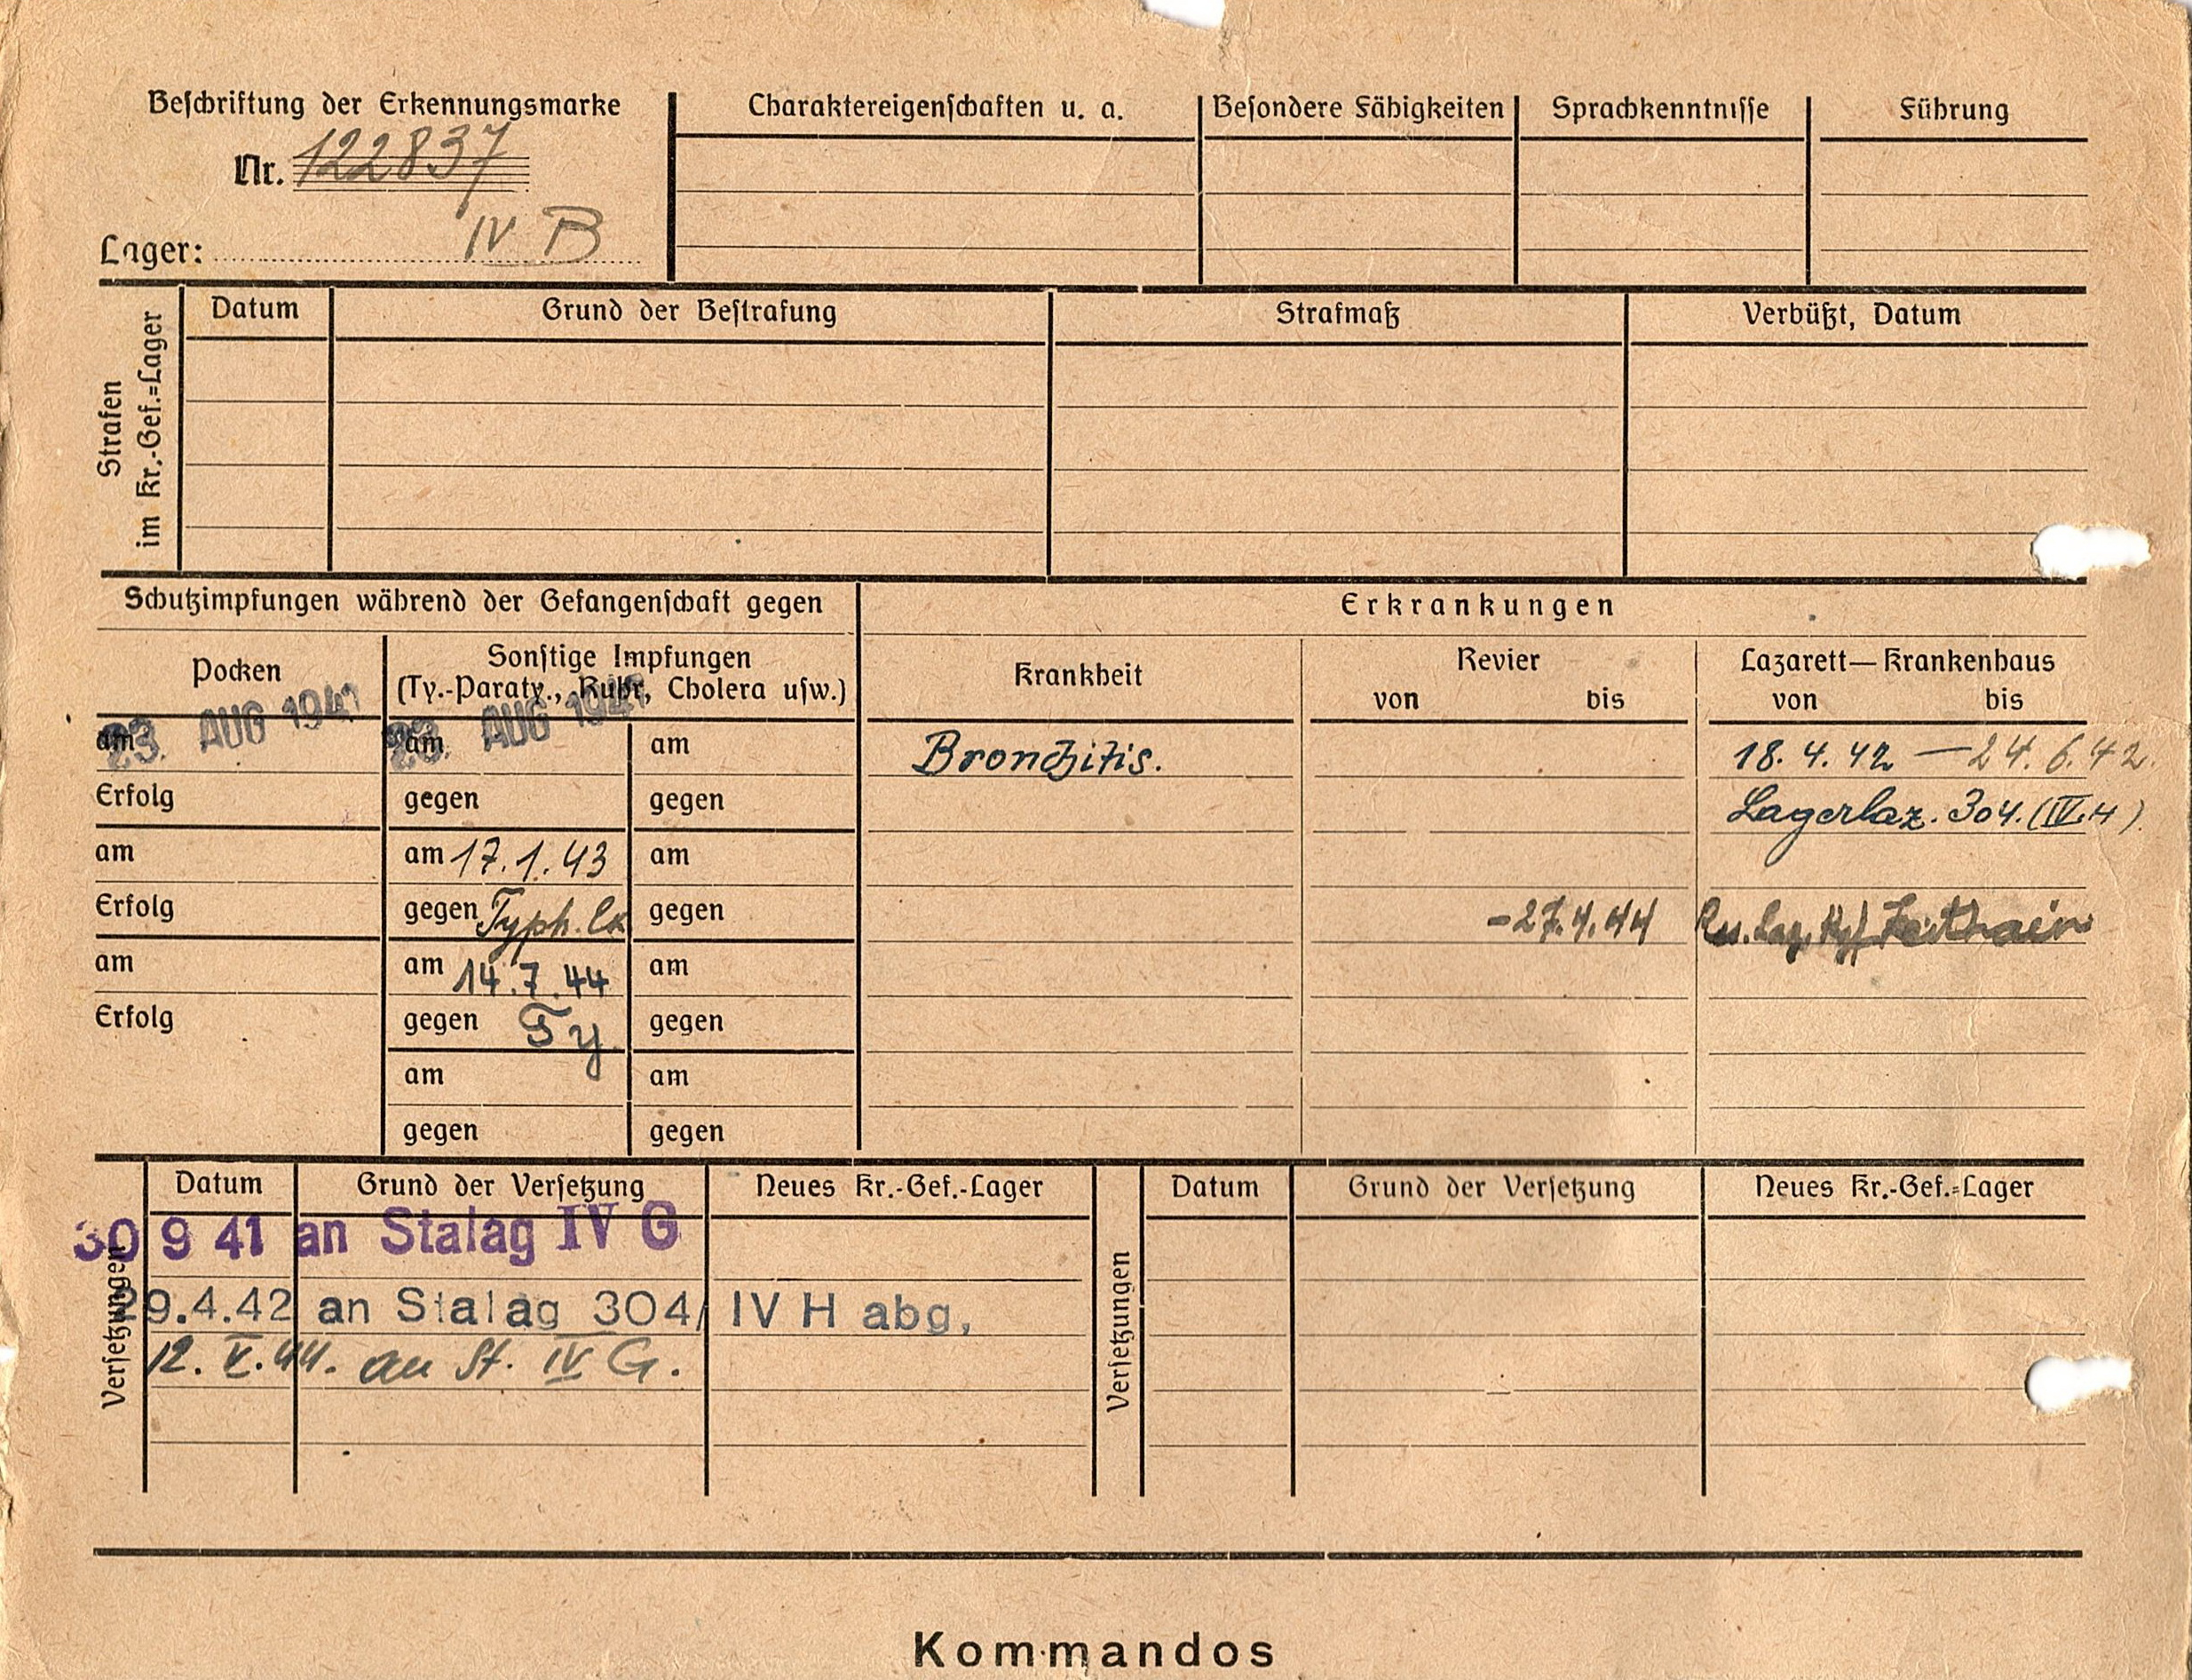 Beschriftung der Erkennungsmarke
Nr. 122837
Lager: IV B
Charaktereigenschaften u. a.
Besondere Fähigkeiten
Sprachkenntnisse
Führung
Strafen
im Kr.-Gef.=Lager
Datum
Grund der Bestrafung
Strafmaß
Verbüßt, Datum
Schutzimpfungen während der Gefangenschaft gegen
Pocken
Sonstige Impfungen
(Ty.-Paraty., Ruhr, Cholera usw.)
am 23. AUG 1941
am 23. AUG 1941
am
Erfolg
gegen
gegen
am
am 17.1.43
am
Erfolg
gegen Typh.
gegen
am
am 14.7.44
am
Erfolg
gegen Ty
gegen
am
am
gegen
gegen
Erkrankungen
Krankheit
Revier
von bis
Lazarett—Krankenhaus
von bis
Bronchitis.
18.4.42 — 24.6.42.
Lagerlaz. 304. (IV.H)
-27.4.44
Res. Laz. Kgf. Zeithain
Versetzungen
Datum
Grund der Versetzung
Neues Kr.-Gef.-Lager
30 9 41 an Stalag IV G
29.4.42 an Stalag 304/ IV H abg,
12. V. 44. an St. IV G.
Versetzungen
Datum
Grund der Versetzung
Neues Kr.-Gef.=Lager
Kommandos